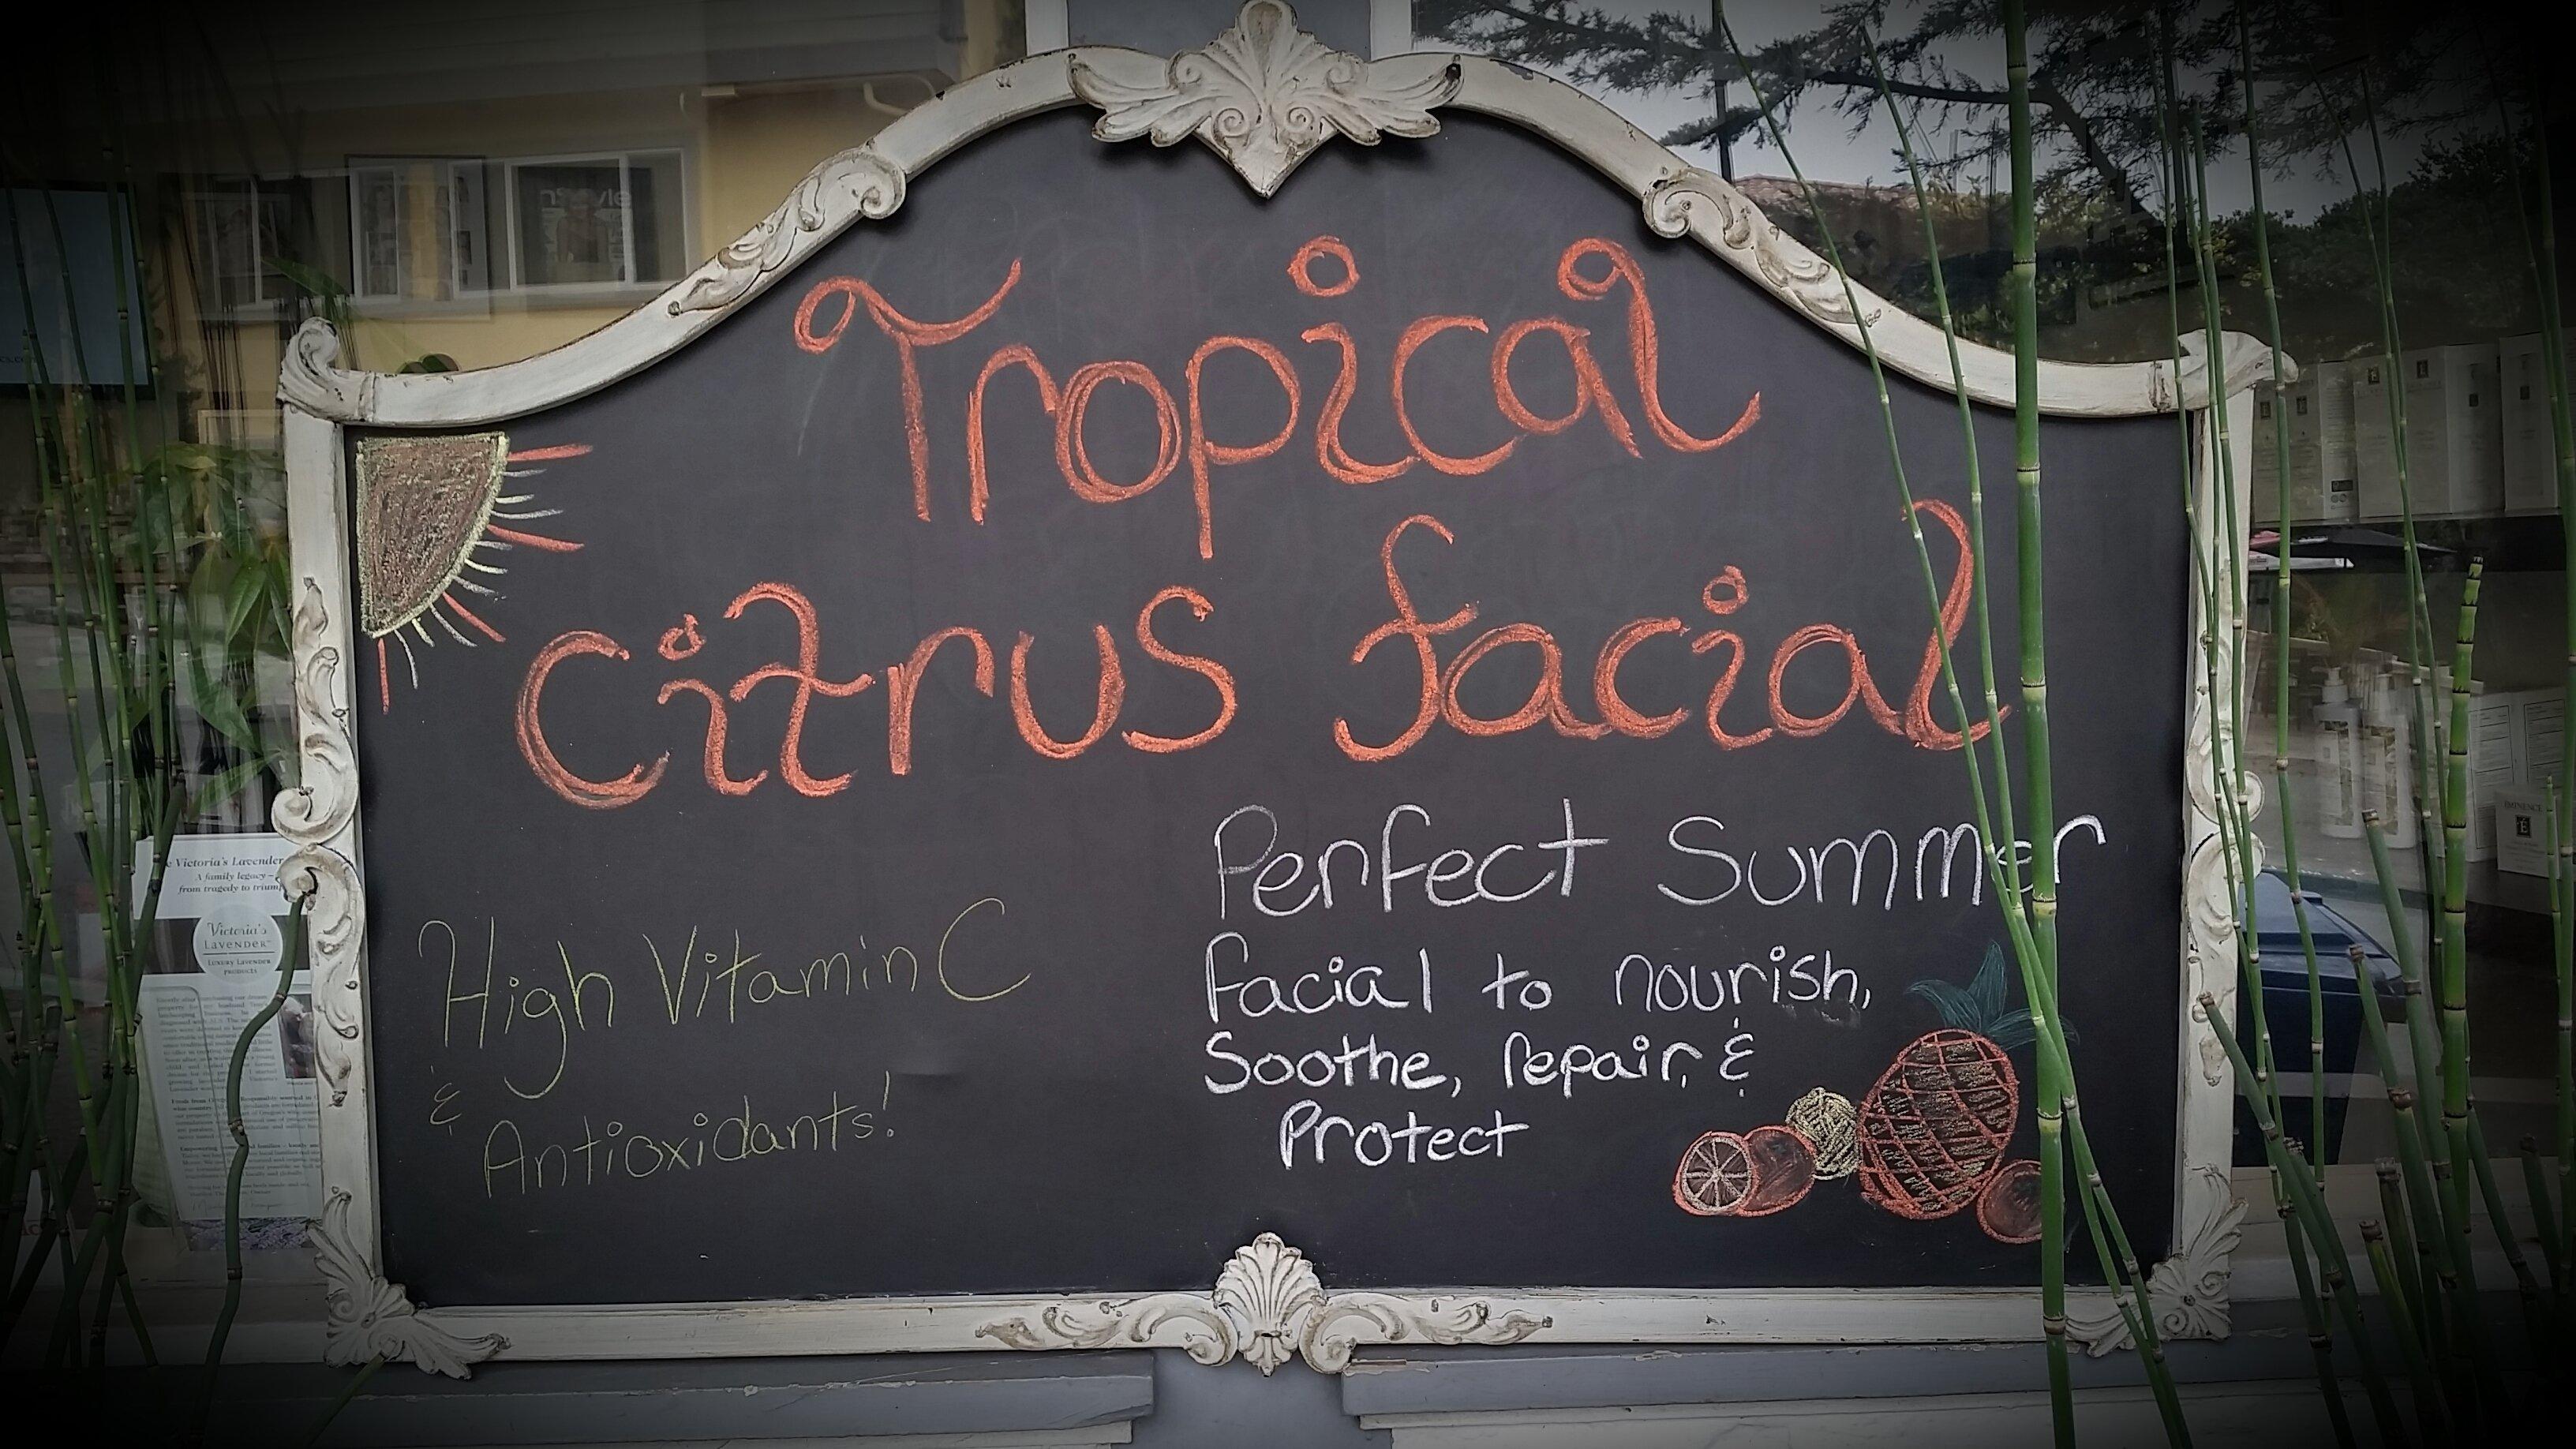 Tropical
Citrus facial
Perfect Summer
facial to nourish,
Soothe, repair, &
Protect
High Vitamin C
&
Antioxidants!
Victoria's Lavender
A family legacy –
from tragedy to
Victoria's
LAVENDER
LUXURY LAVENDER
PRODUCTS
EMINENCE